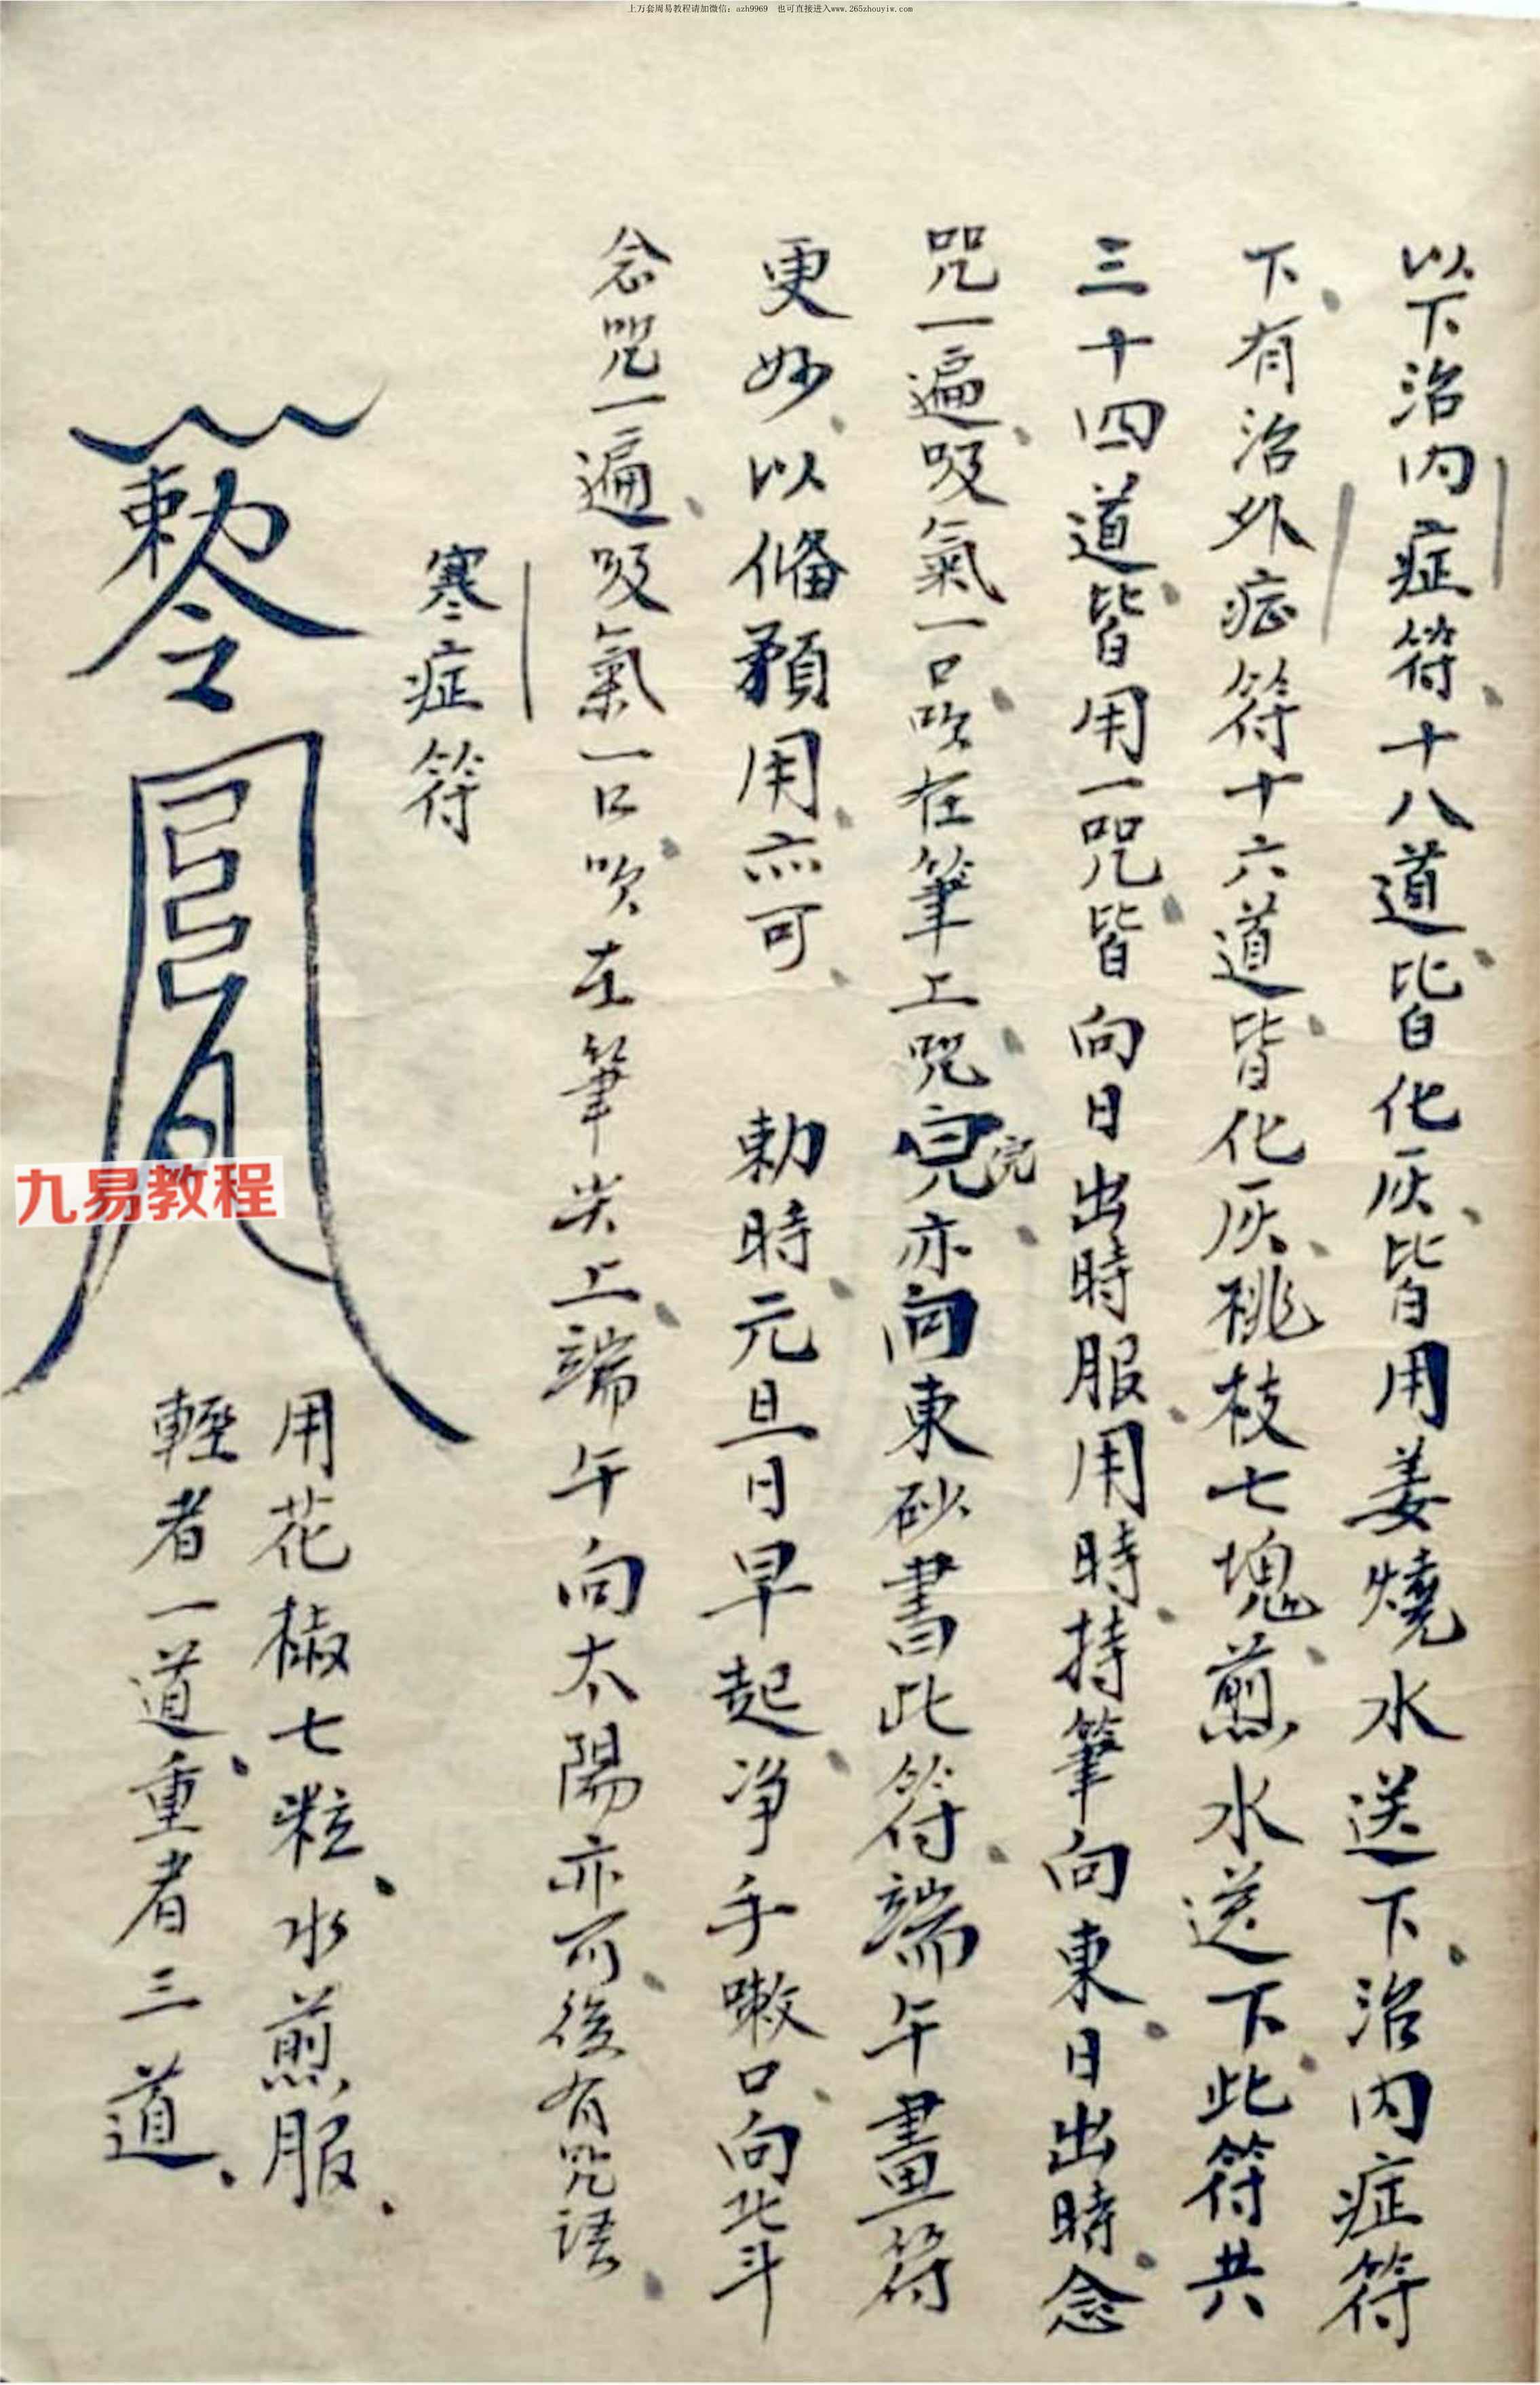 上万套周易教程请加微信：azh9969 也可直接进入www.265zhouyiw.com
以下治内症符十八道皆化灰皆用姜燒水送下治内症符
下有治外症符十六道皆化灰桃枝七塊煎水送下此符共
三十四道皆用一咒皆向日出時服用時持筆向東日出時念
咒一遍吸氣一口吹在筆上咒完亦向東砂書此符端午畫符
更妙以俻預用亦可 勅時元旦日早起净手嗽口向北斗
念咒一遍吸氣一口吹在筆尖上端午向太陽亦可後有咒語
寒症符
勅令
用花椒七粒水煎服
輕者一道重者三道
九易教程